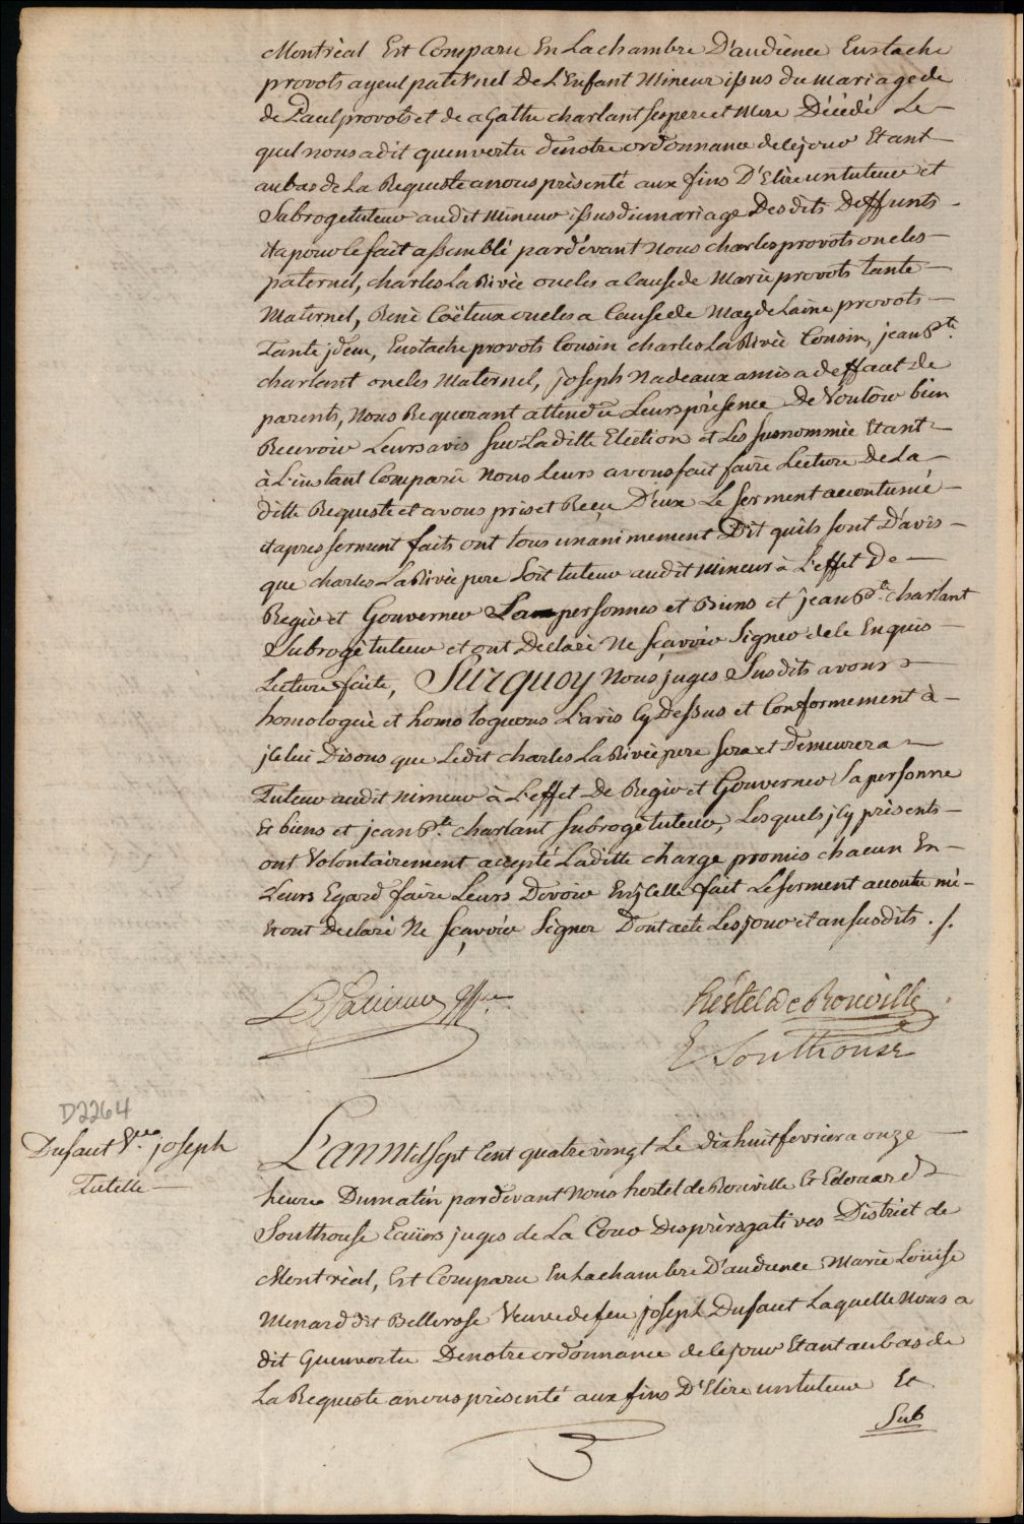 Montréal Est Comparu En La chambre D'audience Eustache
provots ayeul paternel De L'Enfant Mineur issus du mariage de
de Paul provots et de aGathe charlant ses pere et Mere Décédé Le
quel nous a dit quenvertu denotre ordonnance de cejour Etant
au bas de La Requeste a nous présenté aux fins D'Elire un tuteur et
Subroge tuteur audit Mineur issus du mariage Desdits Deffunts
ita pour ce fait assemblé pardévant Nous charles provots oncles
paternel, charles La Rivée oncles a Cause de Marie provots tante
Maternel, René Coëteux oncles a Cause de Magdelaine provots
Tante jdem, Eustache provots Cousin charles La Rivée Cousin, jean Bte.
charlant oncles Maternel, joseph Nadeaux amis a deffaut de
parents, Nous Requerant attendu Leurs présence De Vouloir bien
Recevoir Leurs avis Sur La ditte Election et Les susnommée Etant
à L'instant Comparu Nous Leurs avons fait faire Lecture De La
ditte Requeste et avons pris et Reçu D'eux Le serment accoutumé
et apres serment faits ont tous unanimement Dit quils sont D'avis
que charles La Rivée pere Soit tuteur audit Mineur à L'effet De
Regir et Gouverner Sa personnes et Biens et jean Bte. charlant
Subrogé tuteur et ont Declaré Ne sçavoir Signer de ce Enquis
Lecture faite, Surquoy Nous juges Susdits avons
homologué et homologuons L'avis Cy Dessus et Conformement à
jcelui Disons que Ledit charles La Rivée pere sera et Demeurera
Tuteur audit mineur à L'effet De Regir et Gouverner Sa personne
& biens et jean Bte. charlant Subrogé tuteur, Lesquels jcy présents
ont Volontairement accepté Laditte charge promis chacun En
Leurs Egard faire Leurs Devoir En jCelle fait Le serment accoutumé
et ont Declaré Ne sçavoir Signer Dont acte Les jour et an susdits ./.
hertel de Rouville
E Southouse
D2264
Dufaut Vve. joseph
Tutelle
L'an Mil sept Cent quatre vingt Le dix huit fevrier a onze
heures Du matin pardevant Nous hertel de Rouville & Edouard
Southouse Ecüiers juges de La Cour Des prérogatives District de
Montréal, Est Comparu En La chambre D'audience Marie Loüise
Menard dit Bellerose Veuve de feu joseph Dufaut Laquelle Nous a
dit Quenvertu Denotre ordonnance de cejour Etant au bas de
La Requeste a nous présenté aux fins D'Elire un tuteur Et
Sub